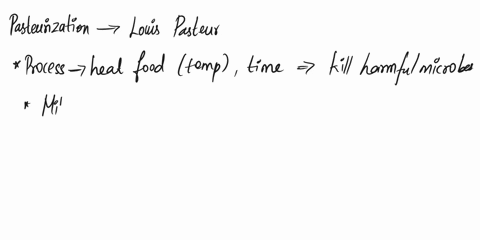 Pasteurization → Louis Pasteur
* Process → heal food (temp), time ⇒ kill harmful microbes
* Mil